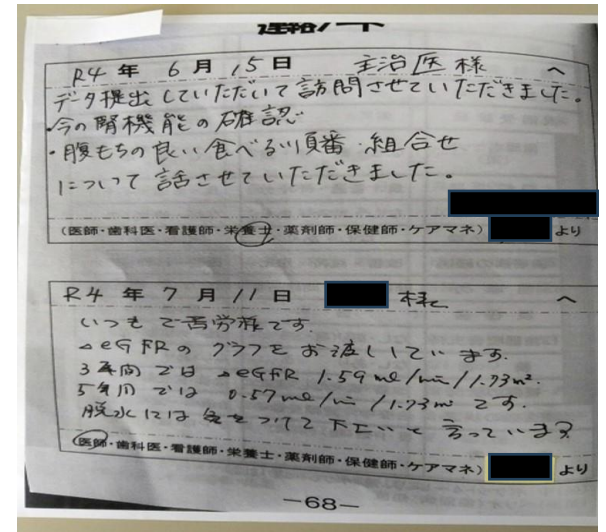 連絡ノート
R4 年 6 月 15 日 主治医 様 へ
データ提出していただいて訪問させていただきました。
・今の腎機能の確認
・腹もちの良い食べる順番・組合せ
について話させていただきました。
(医師・歯科医・看護師・栄養士・薬剤師・保健師・ケアマネ) より
R4 年 7 月 11 日 様 へ
いつもご苦労様です。
⊿eGFRのグラフをお渡ししています。
3年間では⊿eGFR 1.59 ml/min/1.73m².
5年間では 0.57ml/min/1.73m²です.
脱水には気をつけて下さいと言っています
(医師・歯科医・看護師・栄養士・薬剤師・保健師・ケアマネ) より
—68—